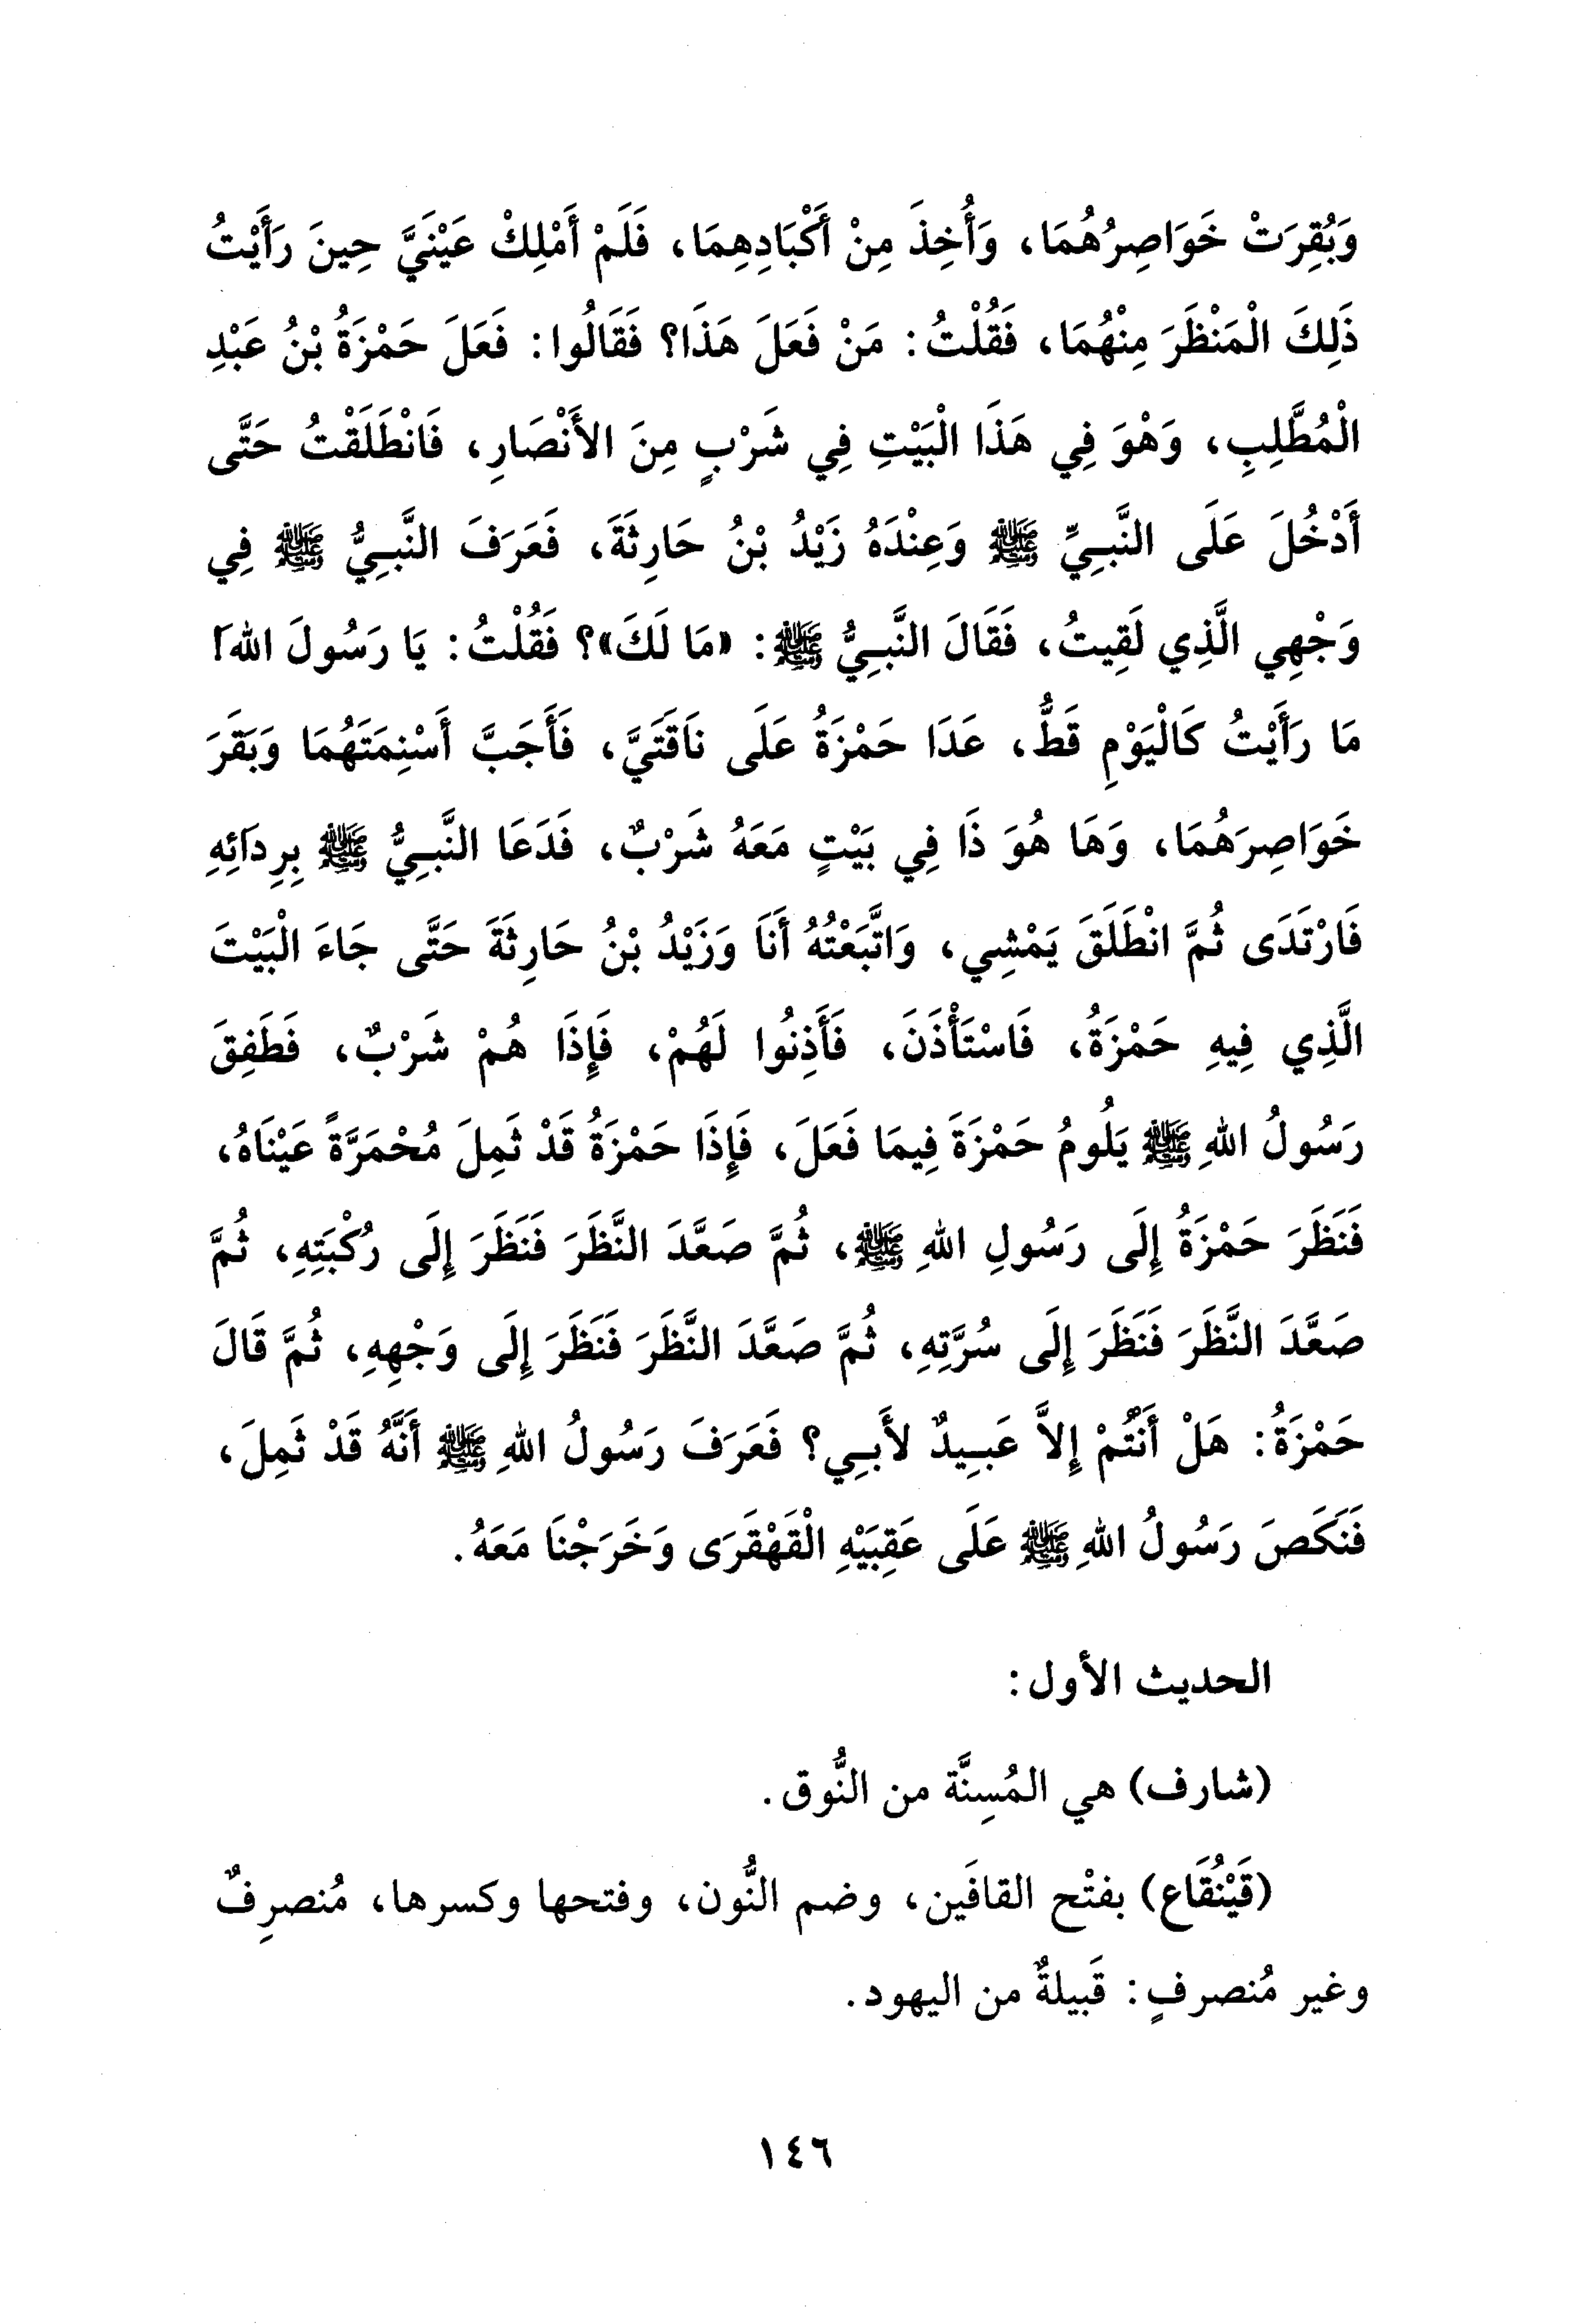 وَبُقِرَتْ خَوَاصِرُهُمَا، وَأُخِذَ مِنْ أَكْبَادِهِمَا، فَلَمْ أَمْلِكْ عَيْنَيَّ حِينَ رَأَيْتُ
ذَلِكَ الْمَنْظَرَ مِنْهُمَا، فَقُلْتُ: مَنْ فَعَلَ هَذَا؟ فَقَالُوا: فَعَلَ حَمْزَةُ بْنُ عَبْدِ
الْمُطَّلِبِ، وَهْوَ فِي هَذَا الْبَيْتِ فِي شَرْبٍ مِنَ الأَنْصَارِ، فَانْطَلَقْتُ حَتَّى
أَدْخُلَ عَلَى النَّبِيِّ ﷺ وَعِنْدَهُ زَيْدُ بْنُ حَارِثَةَ، فَعَرَفَ النَّبِيُّ ﷺ فِي
وَجْهِي الَّذِي لَقِيتُ، فَقَالَ النَّبِيُّ ﷺ: «مَا لَكَ»؟ فَقُلْتُ: يَا رَسُولَ اللهِ!
مَا رَأَيْتُ كَالْيَوْمِ قَطُّ، عَدَا حَمْزَةُ عَلَى نَاقَتَيَّ، فَأَجَبَّ أَسْنِمَتَهُمَا وَبَقَرَ
خَوَاصِرَهُمَا، وَهَا هُوَ ذَا فِي بَيْتٍ مَعَهُ شَرْبٌ، فَدَعَا النَّبِيُّ ﷺ بِرِدَائِهِ
فَارْتَدَى ثُمَّ انْطَلَقَ يَمْشِي، وَاتَّبَعْتُهُ أَنَا وَزَيْدُ بْنُ حَارِثَةَ حَتَّى جَاءَ الْبَيْتَ
الَّذِي فِيهِ حَمْزَةُ، فَاسْتَأْذَنَ، فَأَذِنُوا لَهُمْ، فَإِذَا هُمْ شَرْبٌ، فَطَفِقَ
رَسُولُ اللهِ ﷺ يَلُومُ حَمْزَةَ فِيمَا فَعَلَ، فَإِذَا حَمْزَةُ قَدْ ثَمِلَ مُحْمَرَّةً عَيْنَاهُ،
فَنَظَرَ حَمْزَةُ إِلَى رَسُولِ اللهِ ﷺ، ثُمَّ صَعَّدَ النَّظَرَ فَنَظَرَ إِلَى رُكْبَتِهِ، ثُمَّ
صَعَّدَ النَّظَرَ فَنَظَرَ إِلَى سُرَّتِهِ، ثُمَّ صَعَّدَ النَّظَرَ فَنَظَرَ إِلَى وَجْهِهِ، ثُمَّ قَالَ
حَمْزَةُ: هَلْ أَنْتُمْ إِلاَّ عَبِيدٌ لأَبِي؟ فَعَرَفَ رَسُولُ اللهِ ﷺ أَنَّهُ قَدْ ثَمِلَ،
فَنَكَصَ رَسُولُ اللهِ ﷺ عَلَى عَقِبَيْهِ الْقَهْقَرَى وَخَرَجْنَا مَعَهُ.
الحديث الأول:
(شارف) هي المُسِنَّة من النُّوق.
(قَيْنُقَاع) بفتْح القافَين، وضم النُّون، وفتحها وكسرها، مُنصرِفٌ
وغير مُنصرفٍ: قَبيلةٌ من اليهود.
١٤٦